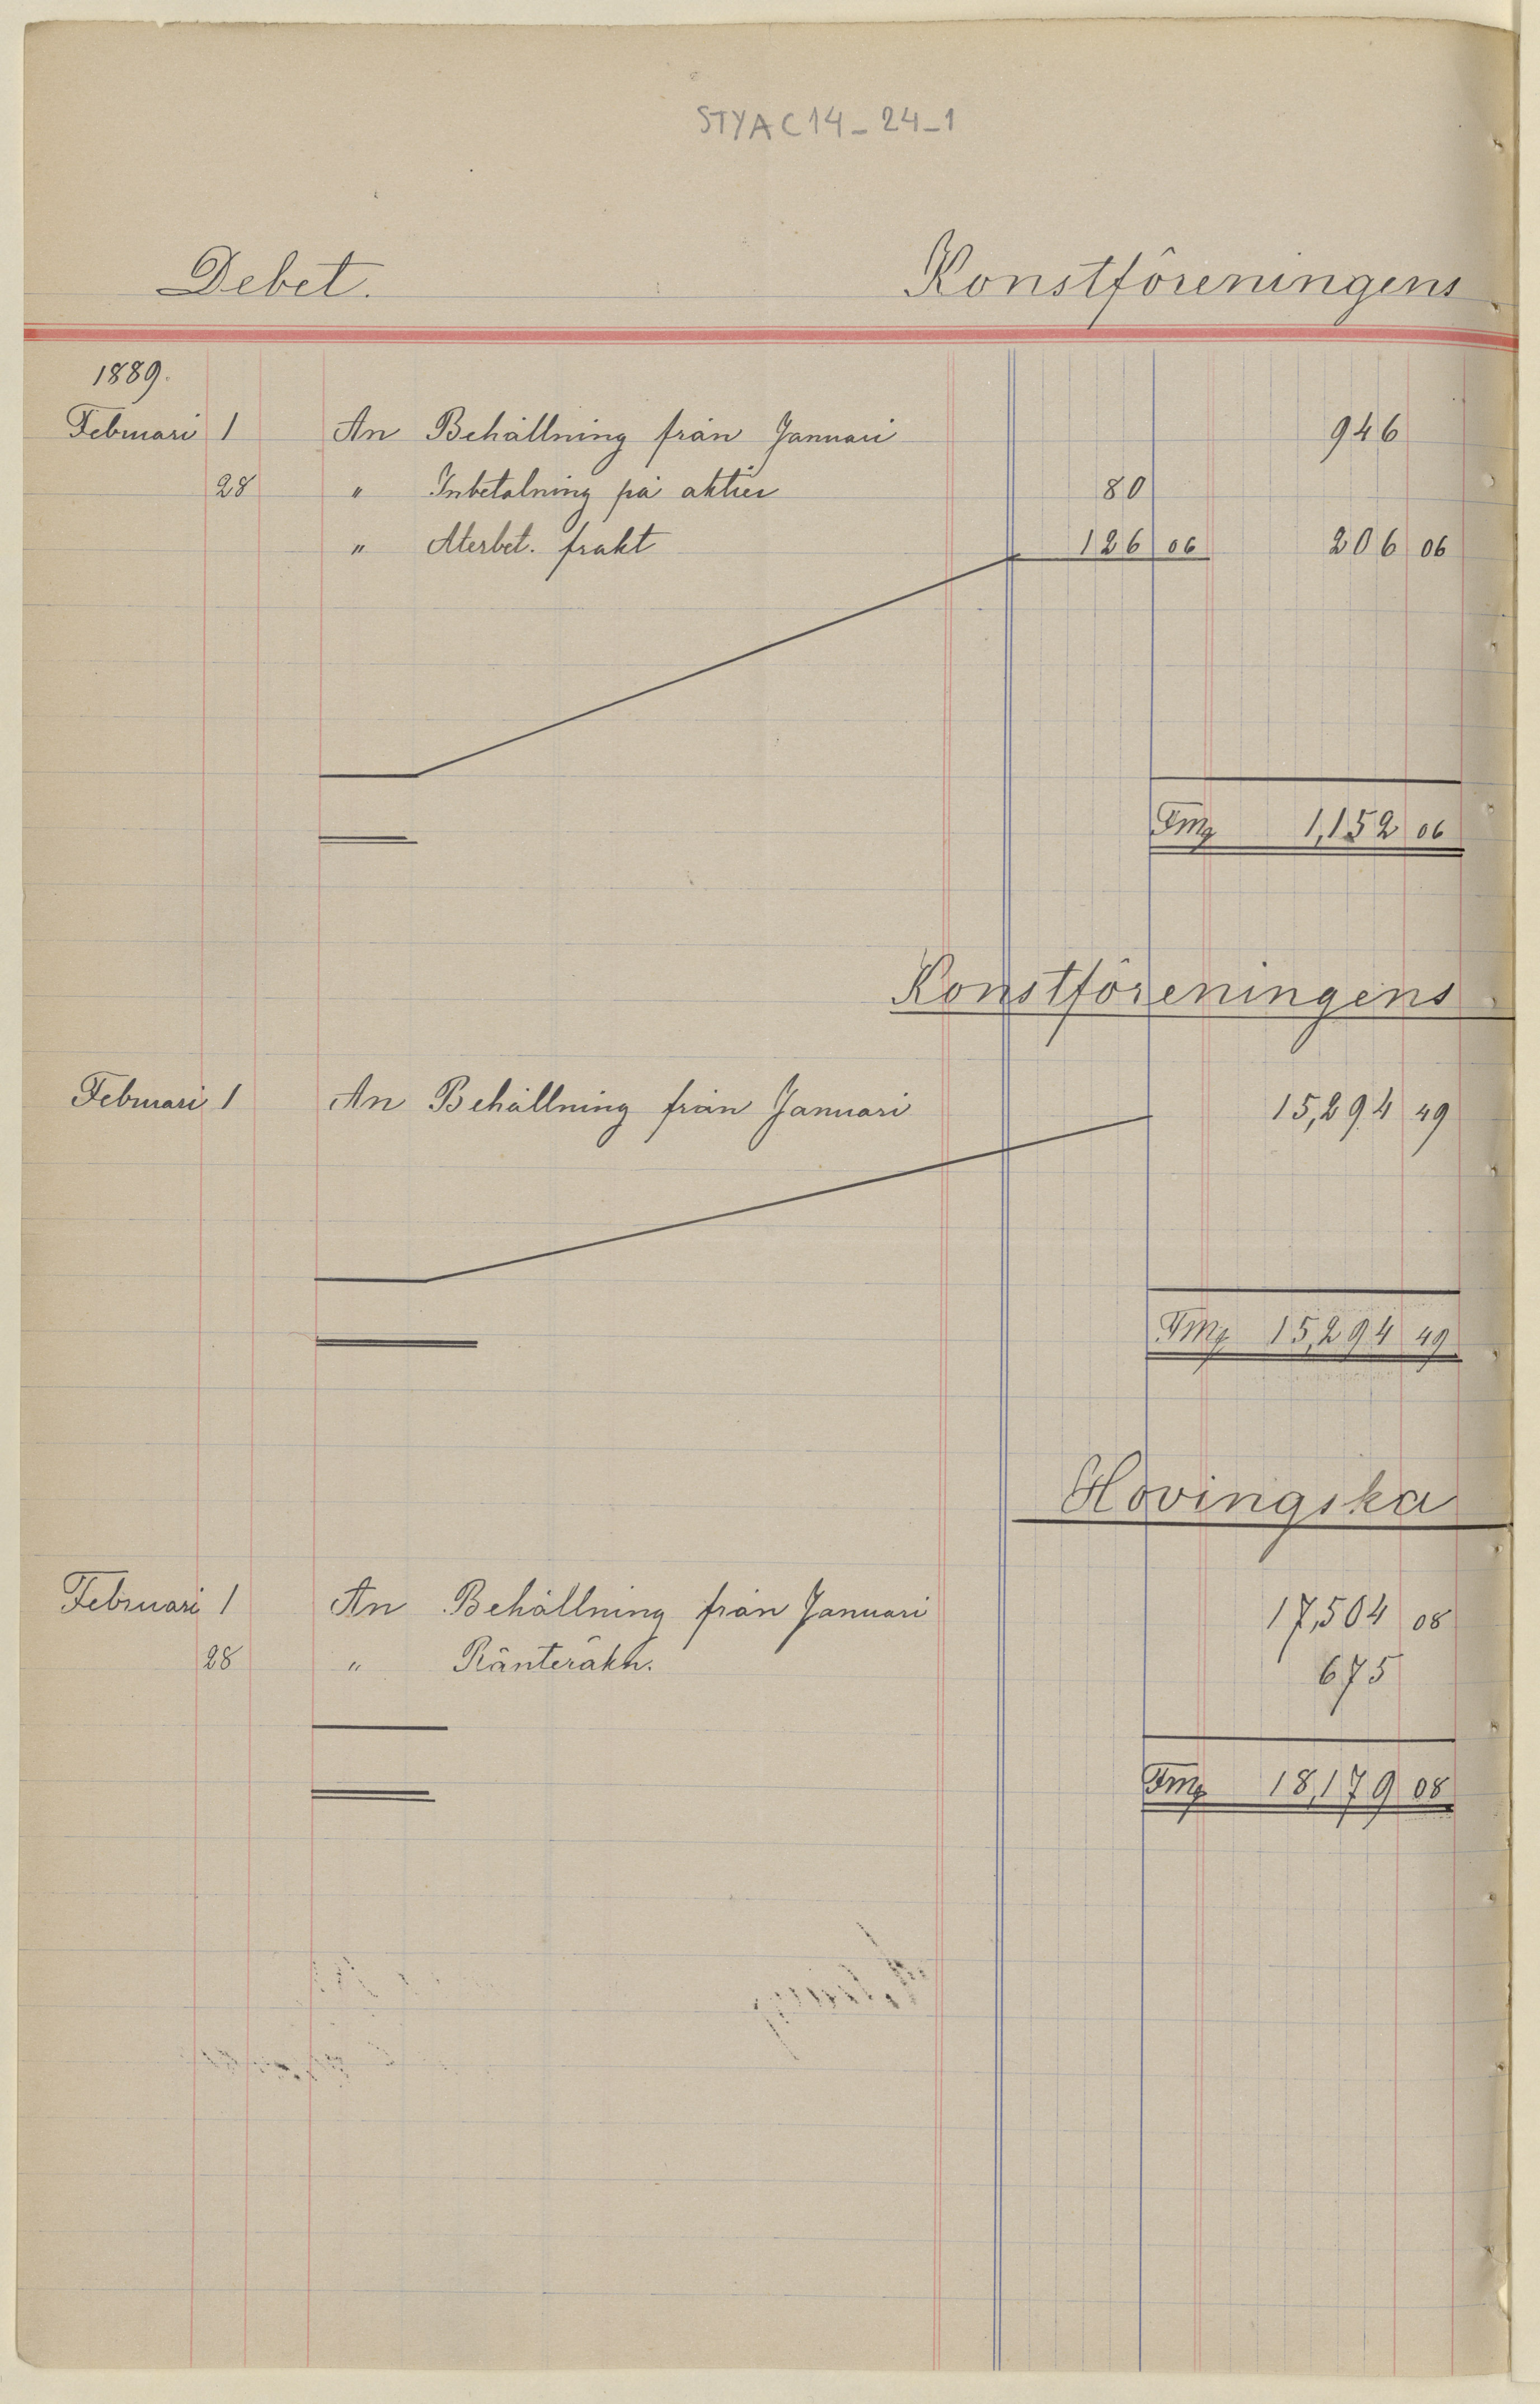 STYAC14-24-1
Debet. Konstföreningens
1889.
Februari 1 An Behållning från Januari 946
28 " Inbetalning på aktier 80
" Återbet. frakt 126 06 206 06
Fmg 1,152 06
Konstföreningens
Februari 1 An Behållning från Januari 15,294 49
Fmg 15,294 49
Hovingska
Februari 1 An Behållning från Januari 17,504 08
28 " Ränteräkn. 675
Fmg 18,179 08